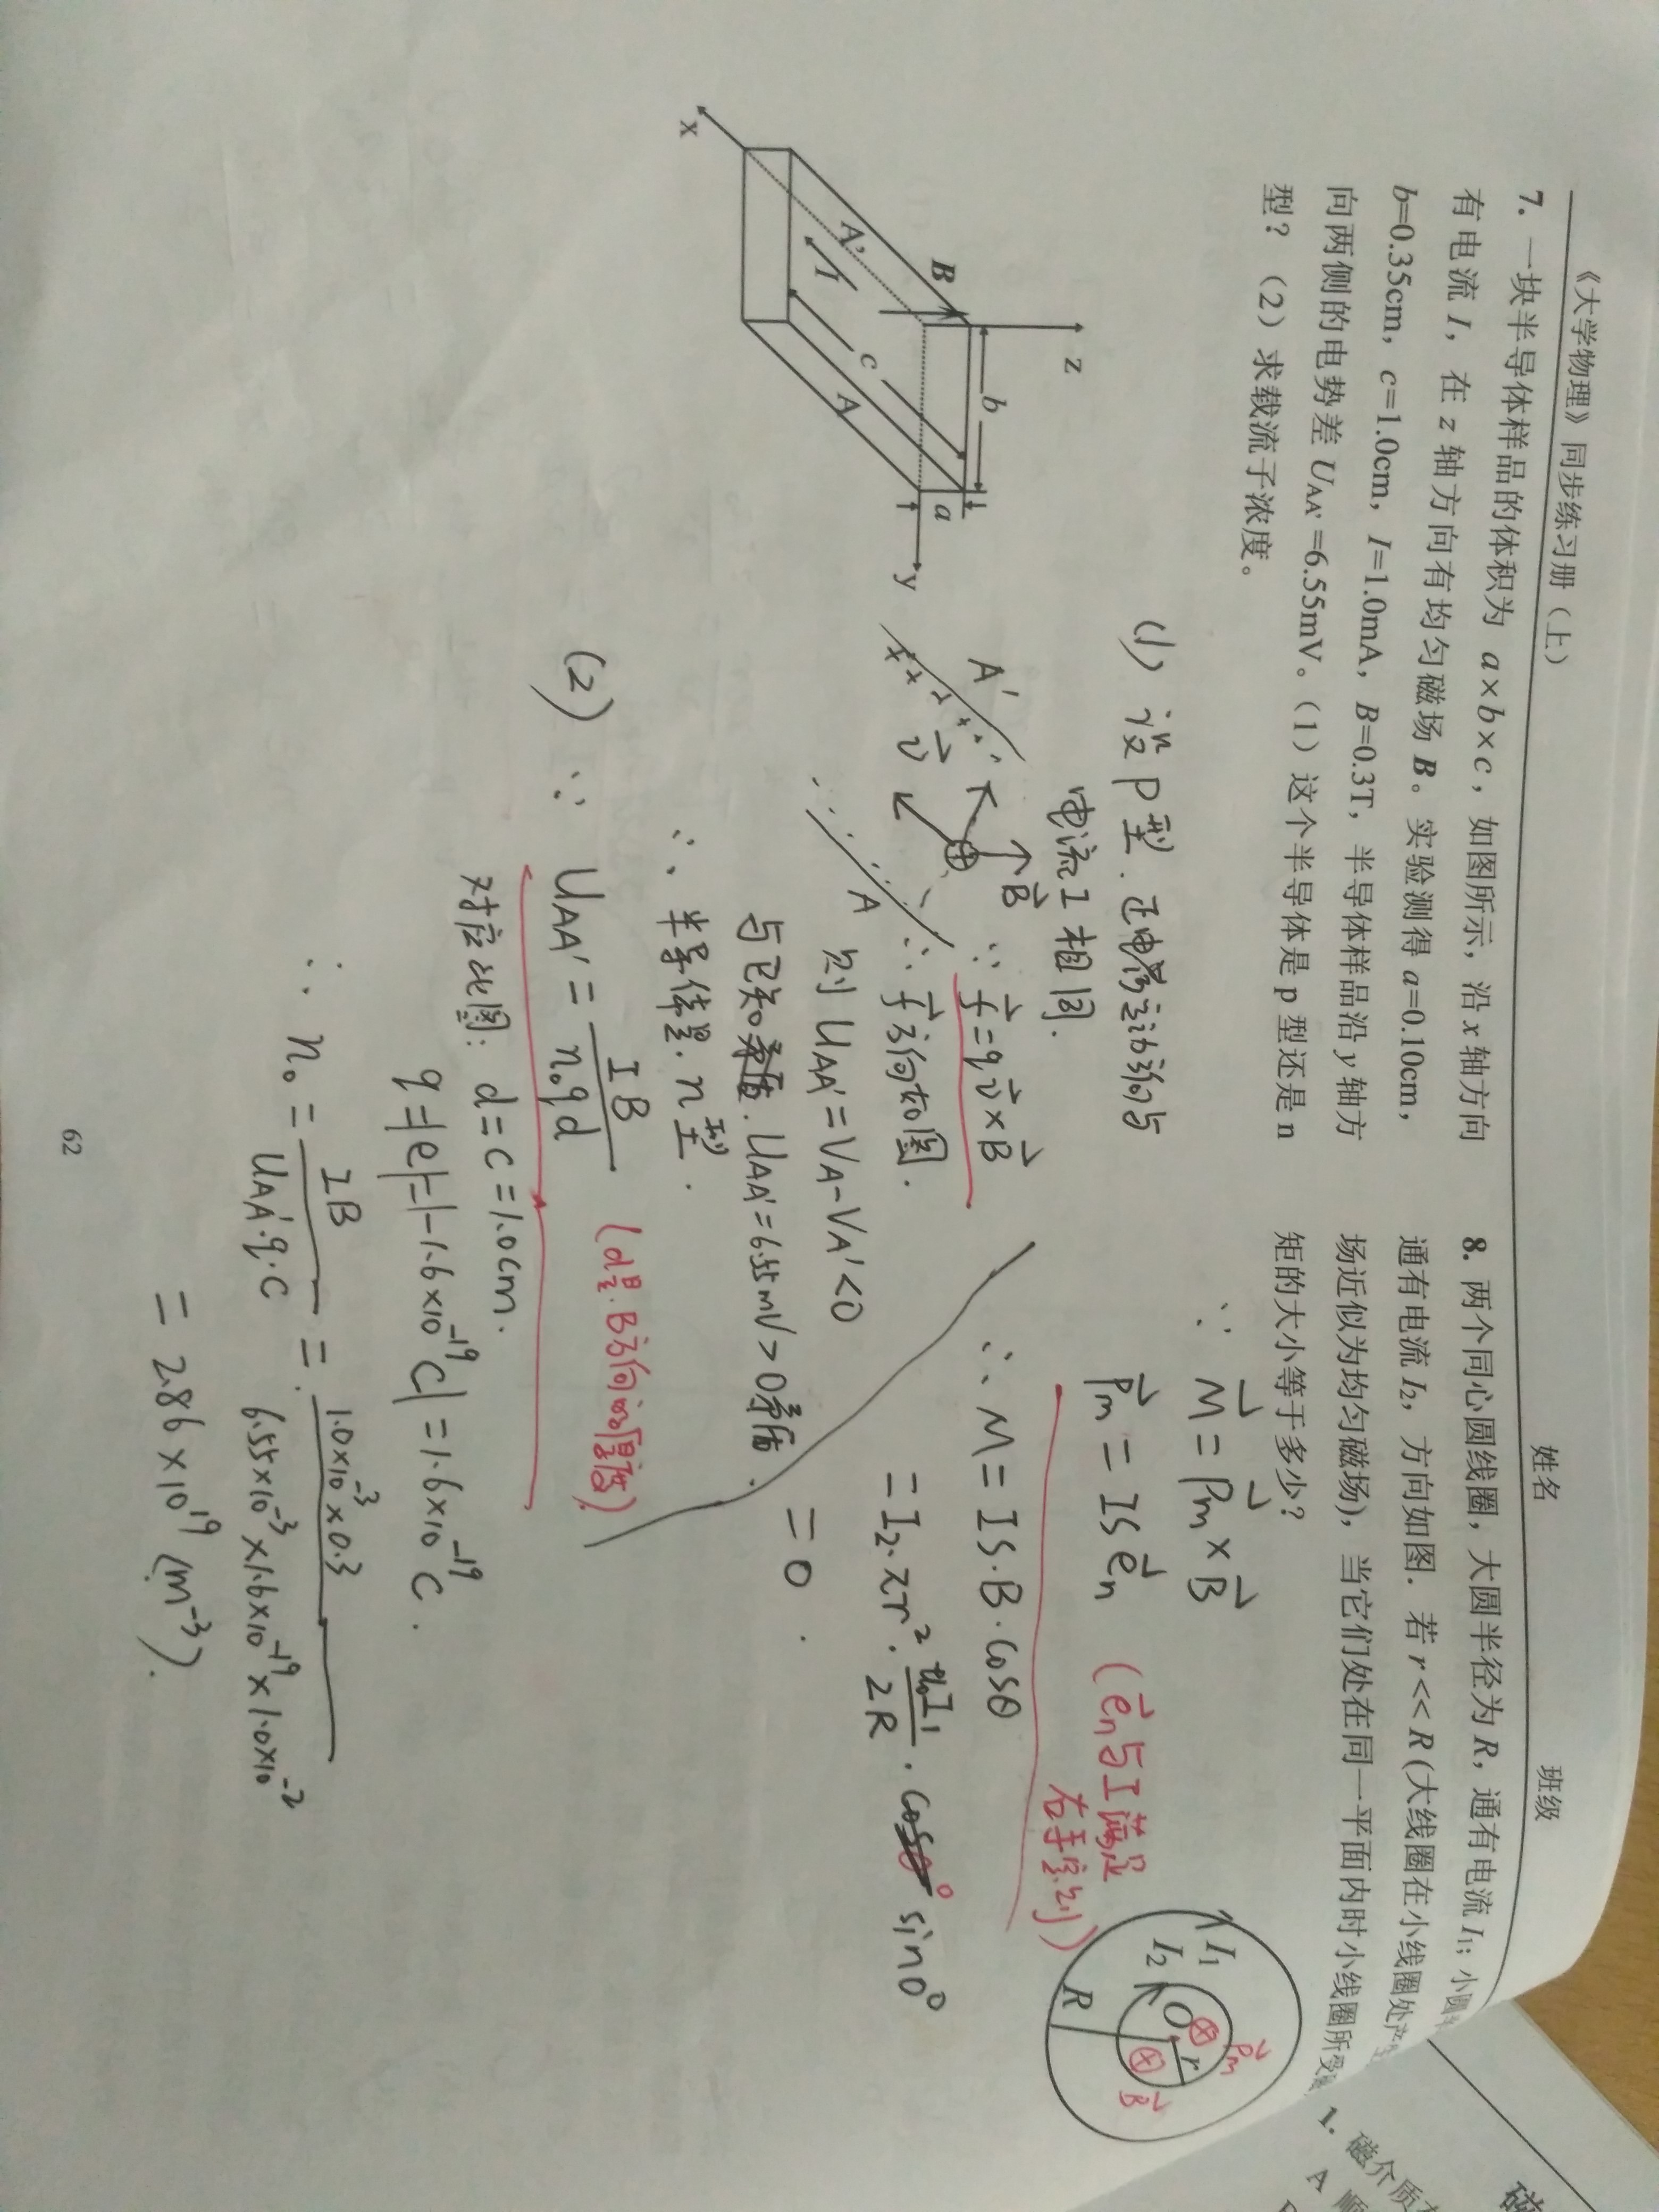 《大学物理》同步练习册（上）
姓名
班级
7. 一块半导体样品的体积为 a×b×c，如图所示，沿 x 轴方向
有电流 I，在 z 轴方向有均匀磁场 B。实验测得 a=0.10cm，
b=0.35cm，c=1.0cm，I=1.0mA，B=0.3T，半导体样品沿 y 轴方
向两侧的电势差 UAA' =6.55mV。（1）这个半导体是 p 型还是 n
型？（2）求载流子浓度。
z
B
b
a
y
A'
I
c
A
x
(1) 设 p 型. 正电荷运动方向与
电流 I 相同.
A'
B⃗
v⃗
A
∵ f⃗=qv⃗×B⃗
∴ f⃗方向如图.
则 UAA'=VA-VA'<0
与已知矛盾. UAA'=6.55mV>0矛盾.
∴ 半导体是. n型.
(2) ∵ UAA' = IB/n₀qd (d是.B方向的厚度).
对应此图: d=c=1.0cm.
q=|e|=|-1.6×10⁻¹⁹C|=1.6×10⁻¹⁹C.
∴ n₀ = IB/UAA'·q·c = 1.0×10⁻³×0.3/6.55×10⁻³×1.6×10⁻¹⁹×1.0×10⁻²
= 2.86×10¹⁹ (m⁻³).
8. 两个同心圆线圈，大圆半径为 R，通有电流 I₁；小圆
通有电流 I₂，方向如图．若 r << R (大线圈在小线圈处产生
场近似为均匀磁场)，当它们处在同一平面内时小线圈所受
矩的大小等于多少？
∵ M⃗ = Pm⃗×B⃗
Pm⃗ = ISe⃗n (e⃗n与I满足
右手定则)
∴ M = IS·B·cosθ
= I₂·πr²·μ₀I₁/2R·cos0° sin0°
= 0.
I₁
I₂
O
r
R
Pm⃗
B⃗
62
1. 磁介质
A 顺
磁